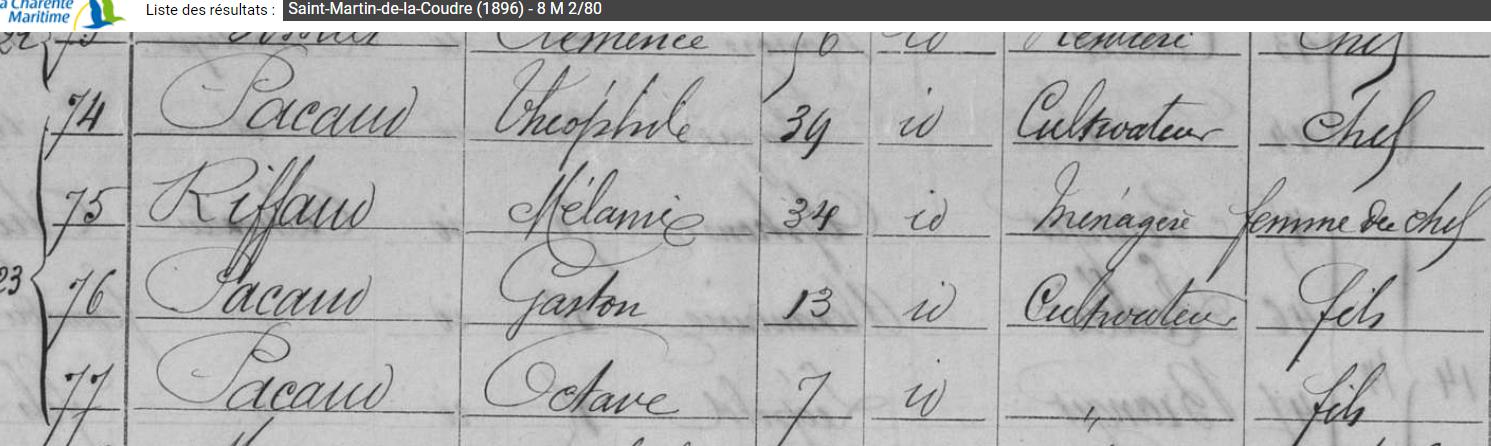 la Charente
Maritime
Liste des résultats : Saint-Martin-de-la-Coudre (1896) - 8 M 2/80
22 73 Clémence 76 id Rentière Chef
74 Pacaud Théophile 39 id Cultivateur Chef
75 Riffaud Mélanie 34 id Ménagère femme du chef
23 76 Pacaud Gaston 13 id Cultivateur fils
77 Pacaud Octave 7 id „ fils